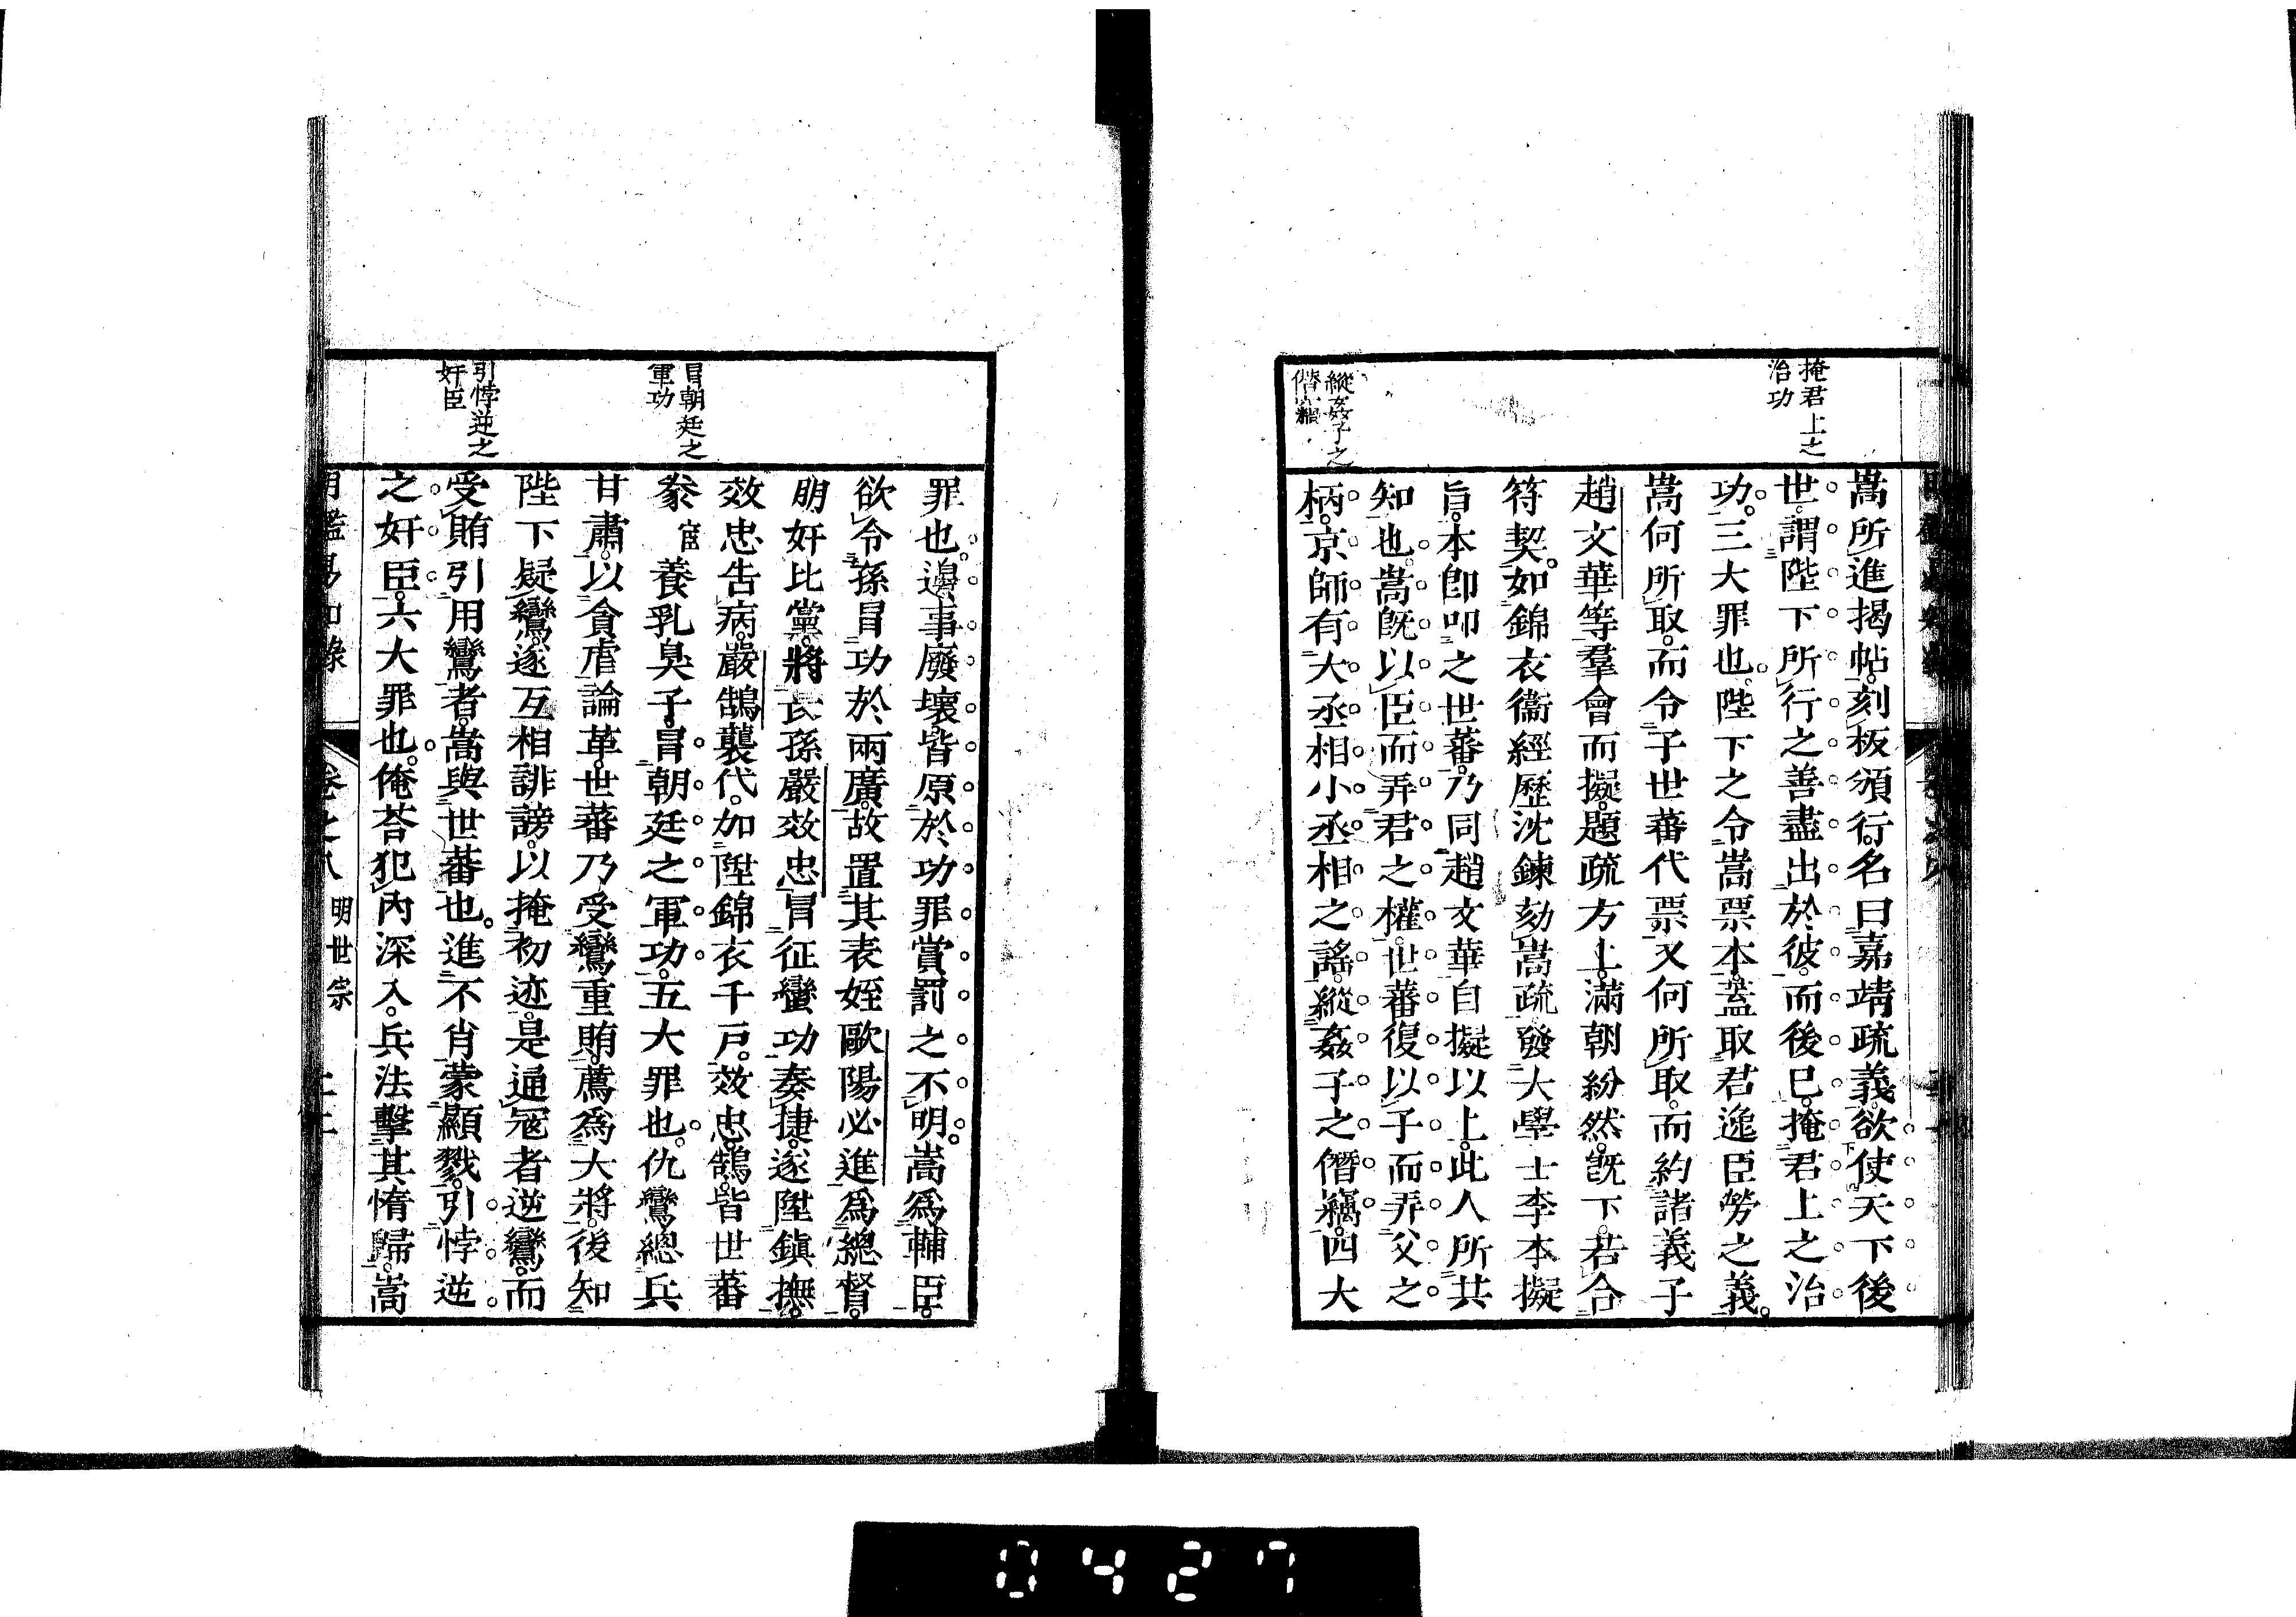 掩君上之
治功
嵩所進揭帖刻板頒行名曰嘉靖疏義欲使天下後
世謂陛下所行之善盡出於彼而後已掩君上之治
功三大罪也陛下之令嵩票本蓋取君逸臣勞之義
嵩何所取而令子世蕃代票又何所取而約諸義子
趙文華等羣會而擬題疏方上滿朝紛然既下若合
符契如錦衣衞經歷沈鍊劾嵩疏發大學士李本擬
旨本卽叩之世蕃乃同趙文華自擬以上此人所共
知也嵩旣以臣而弄君之權世蕃復以子而弄父之
柄京師有大丞相小丞相之謠縱姦子之僭竊四大
縱姦子之
僭竊
罪也邊事廢壞皆原於功罪賞罰之不明嵩爲輔臣
欲令孫冒功於兩廣故置其表姪歐陽必進爲總督
朋奸比黨將長孫嚴效忠冒征蠻功奏捷遂陞鎭撫
效忠吿病嚴鵠襲代加陞錦衣千戸效忠鵠皆世蕃
豢宦養乳臭子冒朝廷之軍功五大罪也仇鸞總兵
甘肅以貪虐論革世蕃乃受鸞重賄薦爲大將後知
陛下疑鸞遂互相誹謗以掩初迹是通寇者逆鸞而
受賄引用鸞者嵩與世蕃也進不肖蒙顯戮引悖逆
之奸臣六大罪也俺荅犯內深入兵法擊其惰歸嵩
冒朝廷之
軍功
引悖逆之
奸臣
明鑑易知錄
卷之八 明世宗